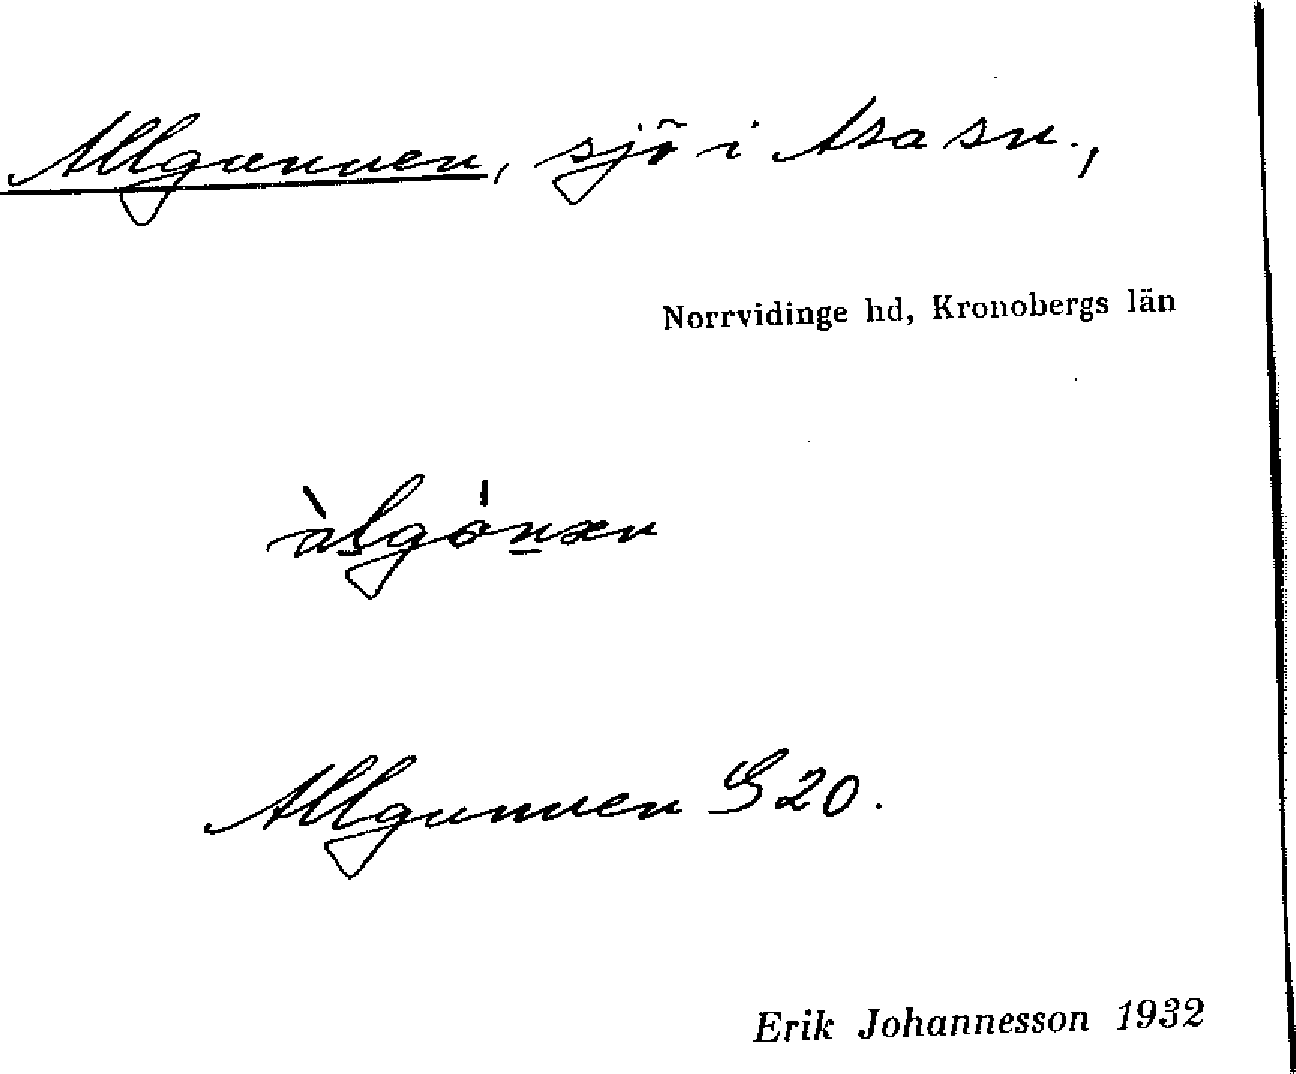 Allgunnen, sjö i Asa sn.,
Norrvidinge hd, Kronobergs län
Allgunnen S 20.
Erik Johannesson 1932